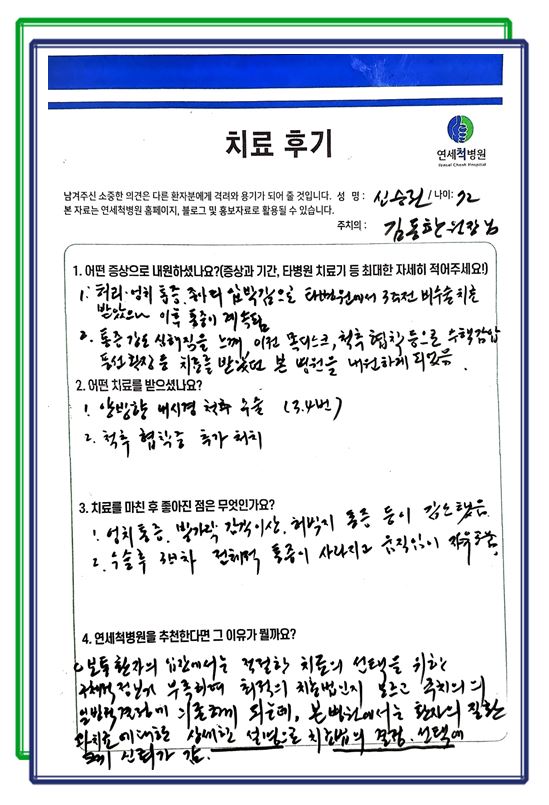 치료 후기
연세척병원
Yonsei Chuck Hospital
남겨주신 소중한 의견은 다른 환자분에게 격려와 용기가 되어 줄 것입니다. 성 명 : 신승린 / 나이: 72
본 자료는 연세척병원 홈페이지, 블로그 및 홍보자료로 활용될 수 있습니다.
주치의 : 김동한 원장님
1. 어떤 증상으로 내원하셨나요?(증상과 기간, 타병원 치료기 등 최대한 자세히 적어주세요!)
1. 허리·엉치 통증, 종아리 압박감으로 타병원에서 3주전 비수술치료
받았으나 이후 통증이 계속됨
2. 통증강도 심해짐을 느껴, 이전 목디스크, 척추 협착 등으로 수핵감압
풍선확장 등 치료를 받았던 본 병원을 내원하게 되었음.
2. 어떤 치료를 받으셨나요?
1. 양방향 내시경 척추 수술 (3.4번)
2. 척추 협착증 추가 처치
3. 치료를 마친 후 좋아진 점은 무엇인가요?
1. 엉치통증, 발가락 감각이상, 허벅지 통증 등이 감소했음
2. 수술후 3일차 전체적 통증이 사라지고 움직임이 자유로움
4. 연세척병원을 추천한다면 그 이유가 뭘까요?
보통 환자의 입장에서는 적절한 치료의 선택을 위한
구체적 정보가 부족하며 최적의 치료법인지 모르고 주치의의
일방적 결정에 의존하게 되는데, 본병원에서는 환자의 질환
과 치료에 대한 상세한 설명으로 치료법의 결정, 선택에
신뢰가 감.